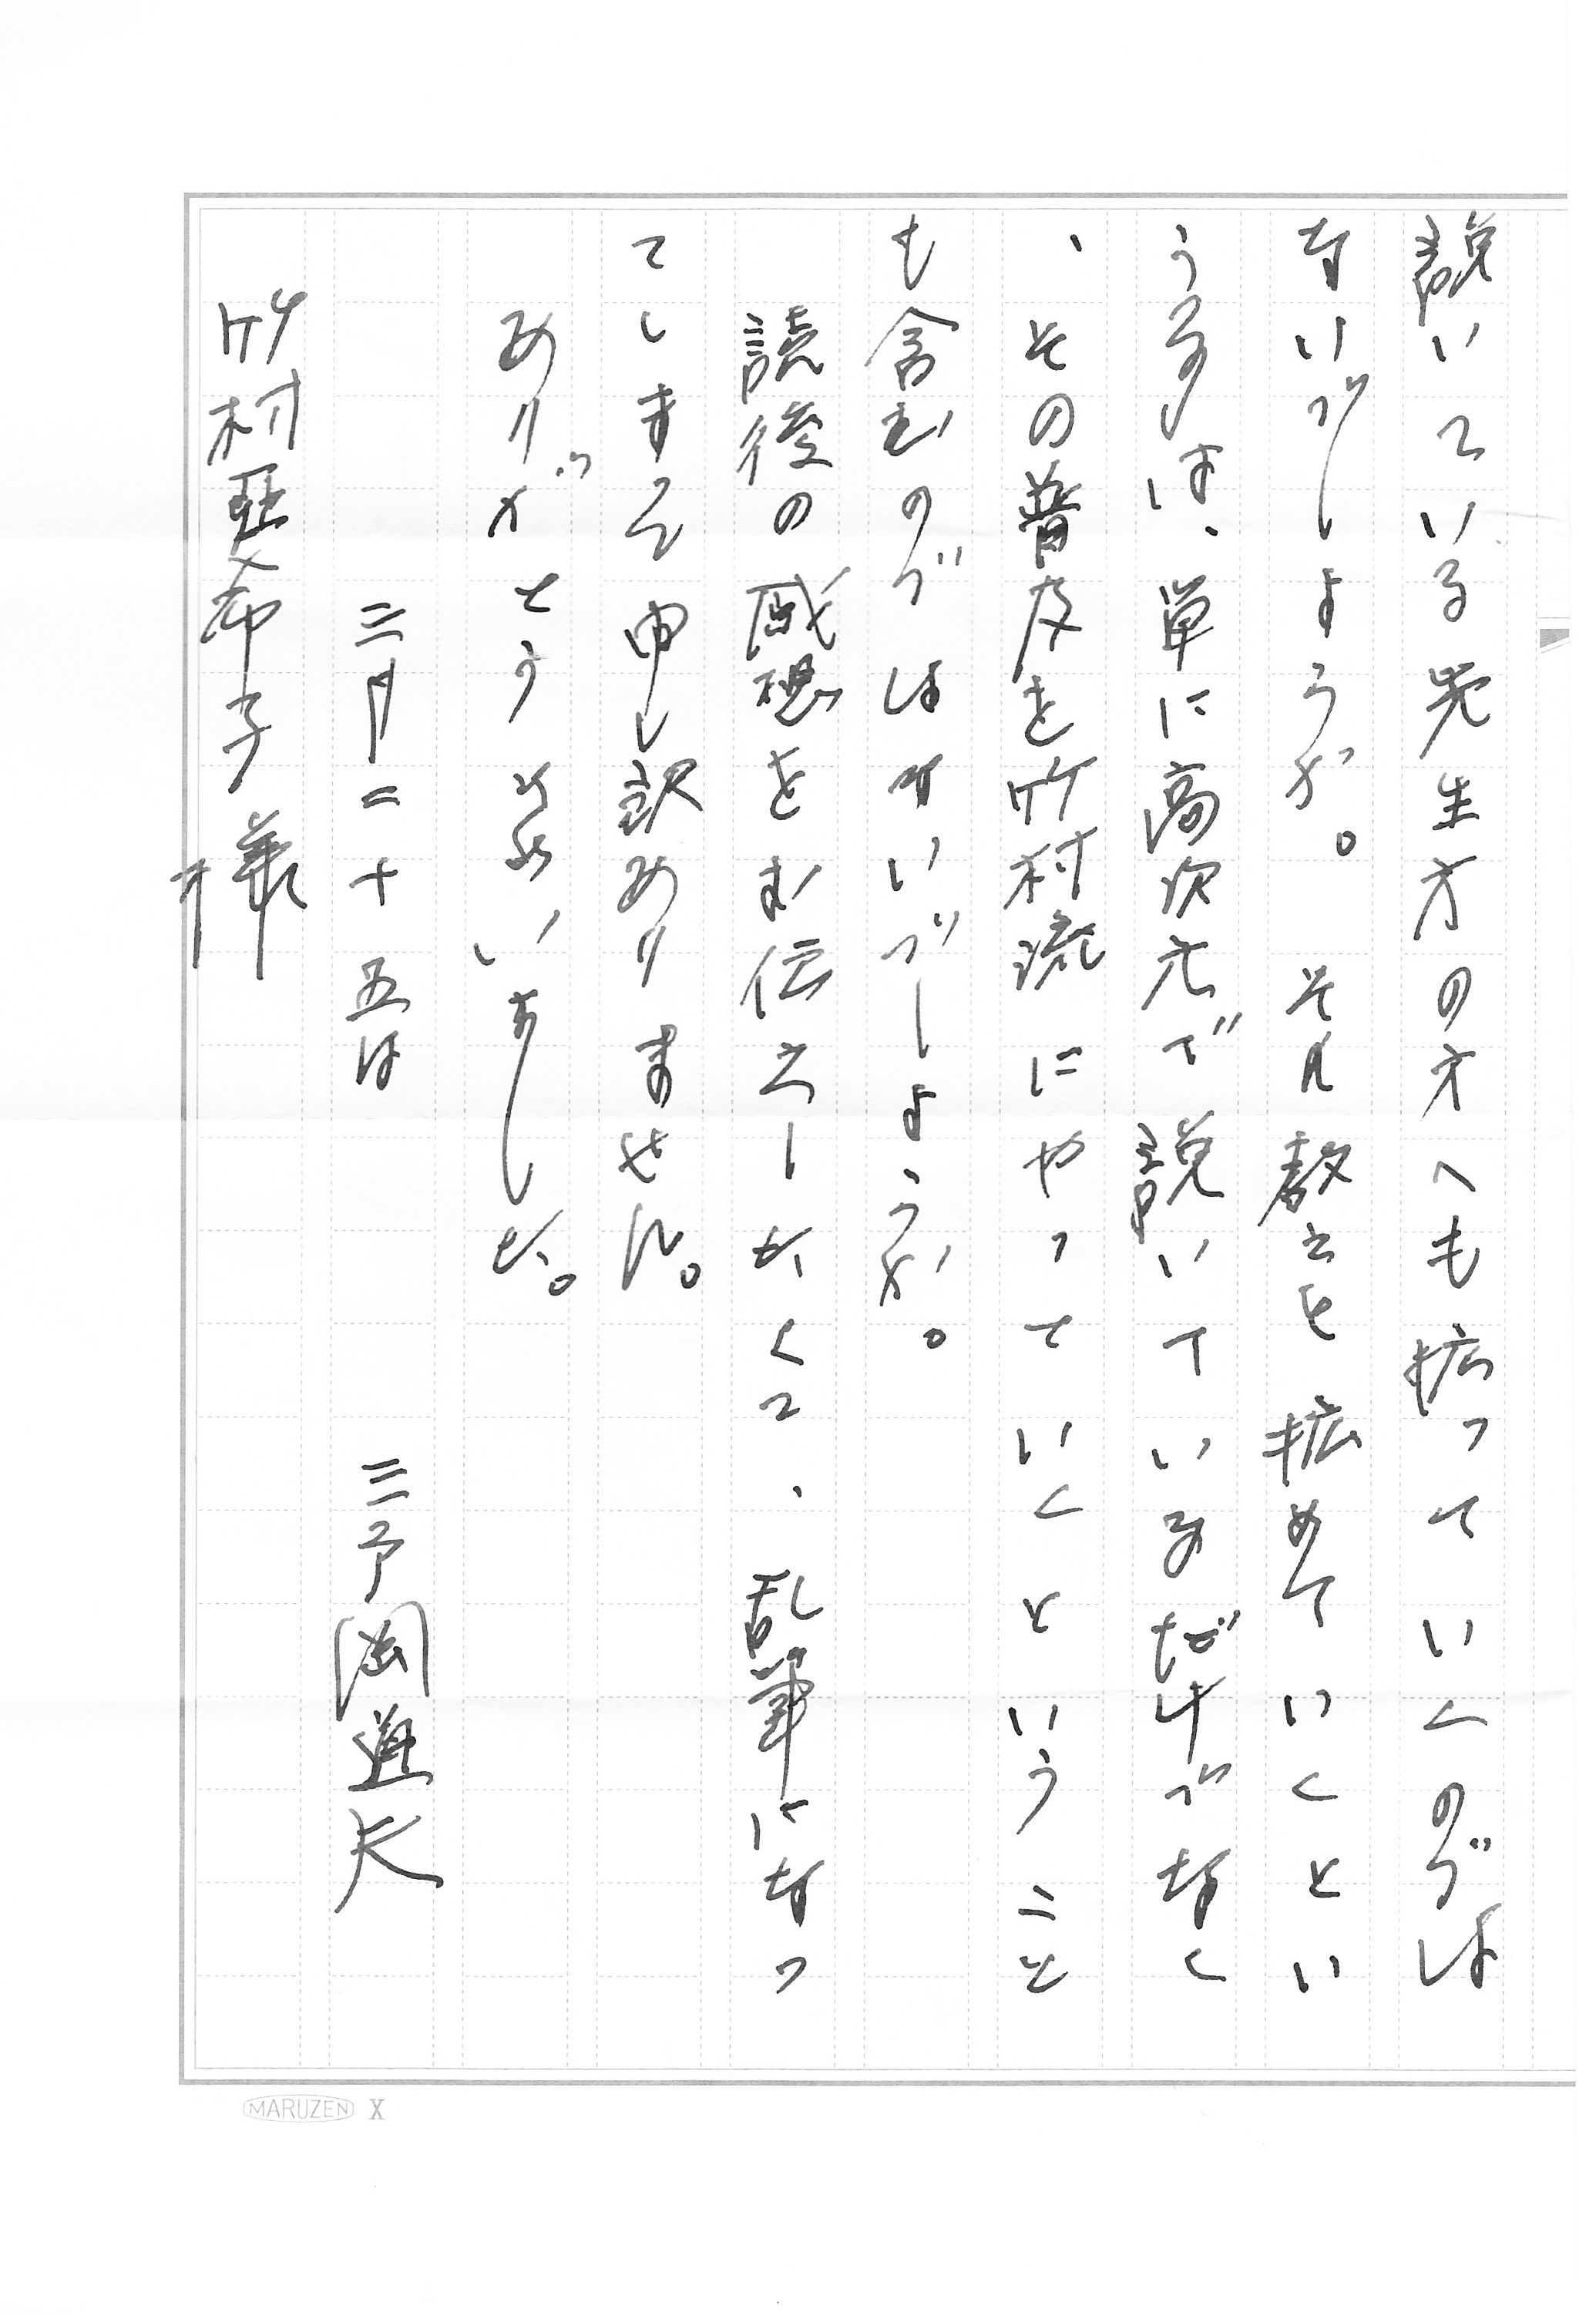 説いている先生方の方へも拡っていくのでは
ないでしょうか。それ教えを拡めていくとい
う事は、単に高次元で説いているだけでなく
、その普及を竹村流にやっていくということ
も含むのではないでしょうか。
読後の感想をお伝えしたくて、乱筆になっ
てしまって申し訳ありません。
ありがとうございました。
三月二十五日
三予岡道夫
竹村亞希子様
MARUZEN X